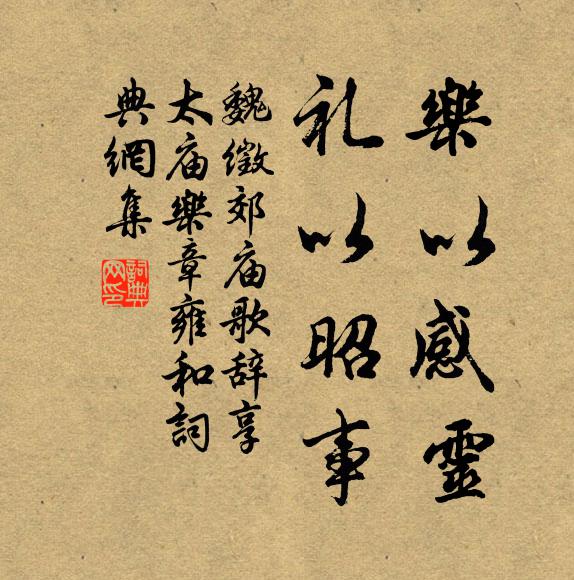 樂以感靈
礼以昭事
魏徵郊庙歌辞享
太庙樂章雍和詞
典網集
詞典
网印